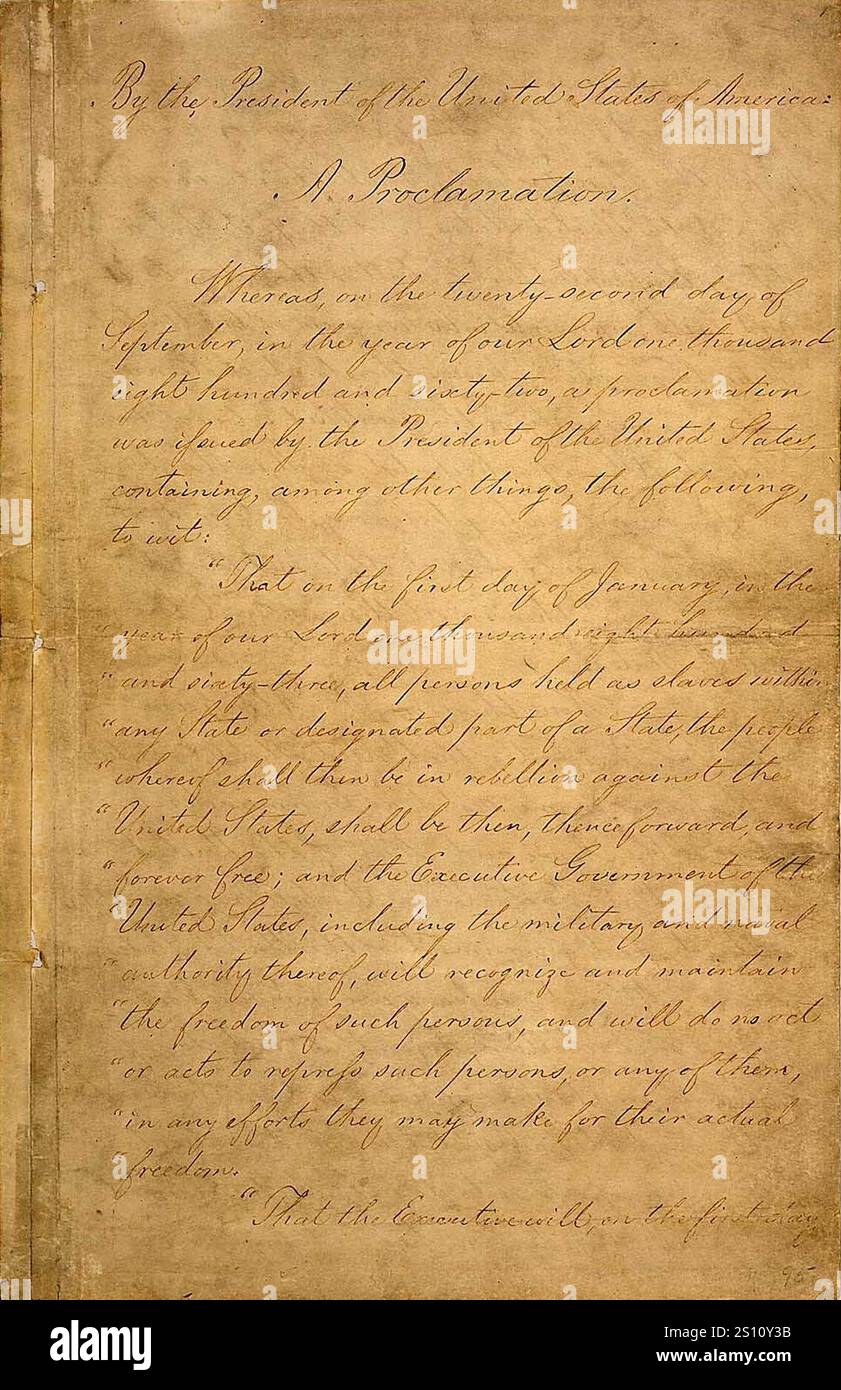 By the President of the United States of America:
A Proclamation.
Whereas, on the twenty-second day of
September, in the year of our Lord one thousand
eight hundred and sixty-two, a proclamation
was issued by the President of the United States,
containing, among other things, the following,
to wit:
"That on the first day of January, in the
"year of our Lord one thousand eight hundred
"and sixty-three, all persons held as slaves within
"any State or designated part of a State, the people
"whereof shall then be in rebellion against the
"United States, shall be then, thenceforward, and
"forever free; and the Executive Government of the
"United States, including the military and naval
"authority thereof, will recognize and maintain
"the freedom of such persons, and will do no act
"or acts to repress such persons, or any of them,
"in any efforts they may make for their actual
"freedom.
"That the Executive will, on the first day
95
alamy
Image ID: 2S10Y3B
www.alamy.com